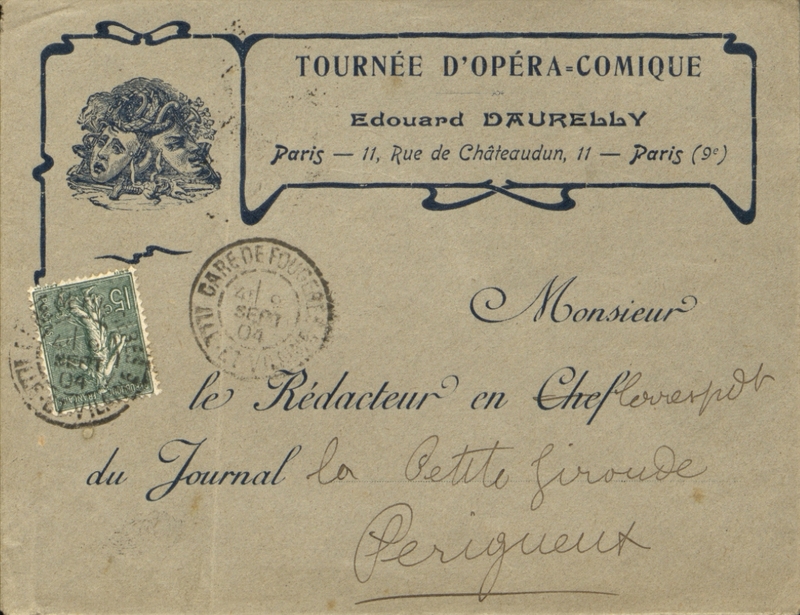 TOURNÉE D'OPÉRA=COMIQUE
Edouard DAURELLY
Paris — 11, Rue de Châteaudun, 11 — Paris (9e)
GARE DE FOUGERES
SEPT
04
ILLE-ET-VILAINE
15
SEPT
04
ILLE-ET-VILAINE
Monsieur
le Rédacteur en Chef Correspdt
du Journal la Petite Gironde
Perigueux